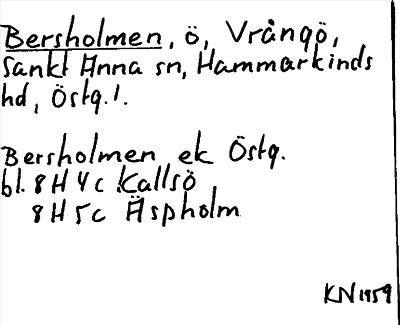 Bersholmen, ö, Vrångö,
Sankt Anna sn, Hammarkinds
hd, Östg.!.
Bersholmen ek Östg.
bl. 8H4c Kallsö
8H5c Äspholm
KN 1959